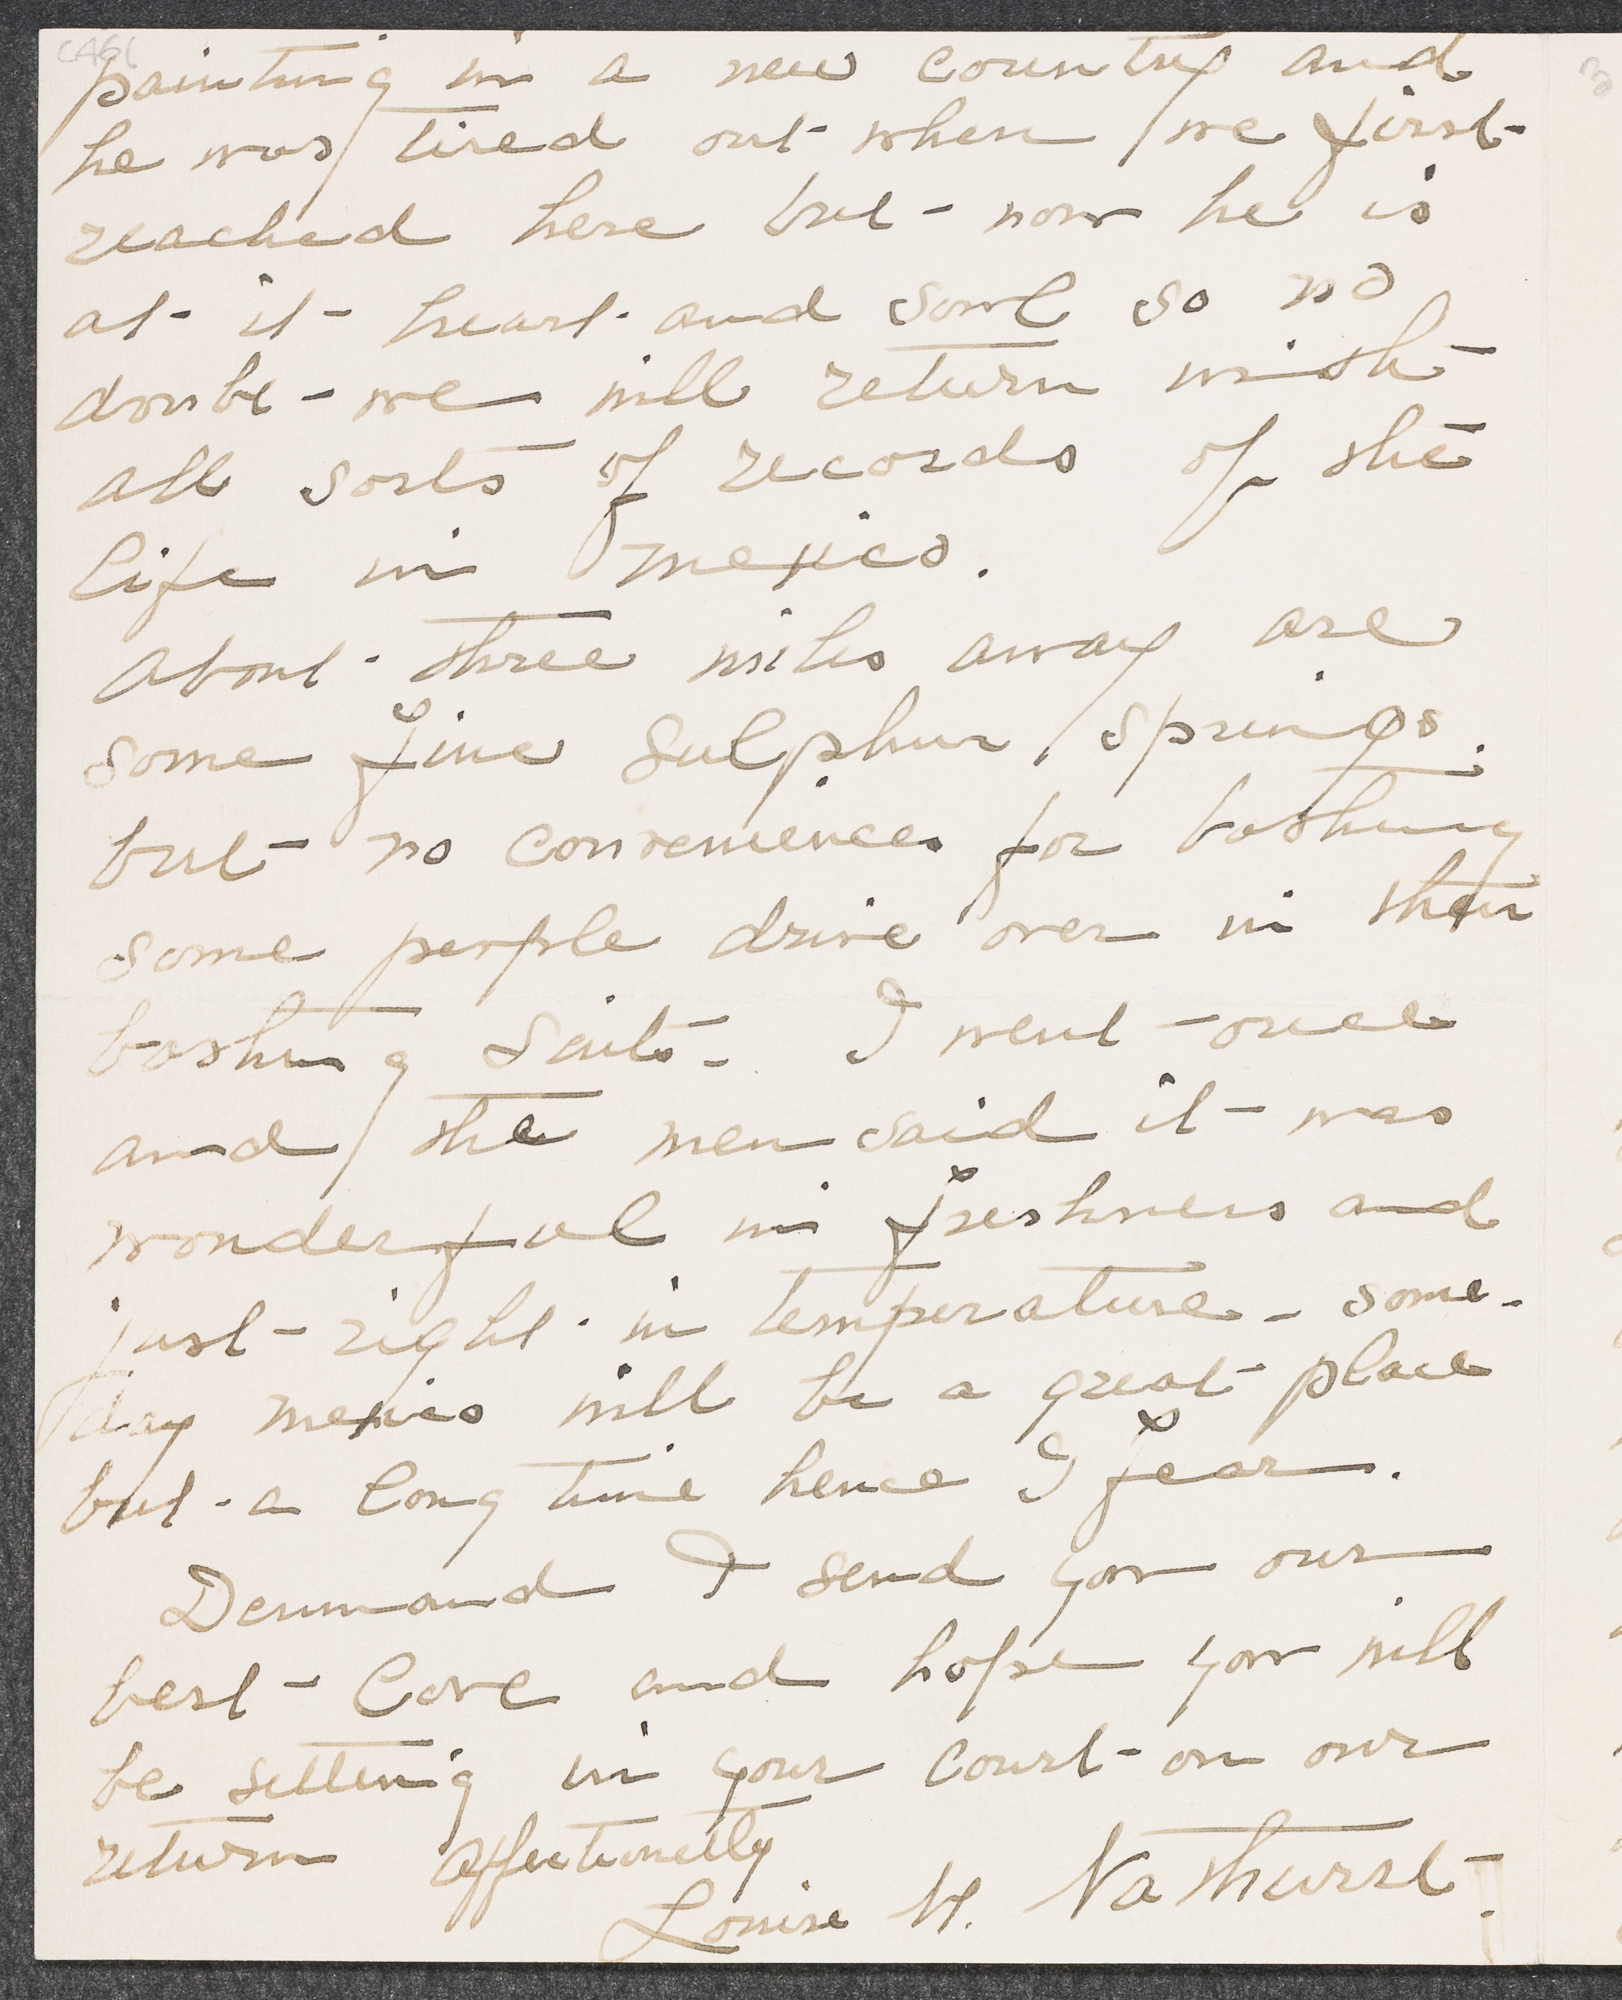 painting in a new country and
he was tired out - when we first -
reached here but - now he is
at - it - heart - and soul so no
doubt - we will return with
all sorts of records of the
life in Mexico.
About - three miles away are
some fine Sulphur Springs.
but - no conveniences for bathing
some people drive over in their
bathing suits - I went - once
and the men said it - was
wonderful in freshness and
just - right - in temperature - some-
day Mexico will be a great - place
but - a long time hence I fear.
Denmand I send you our
best - love and hope you will
be setting in your court - on our
return affectionetly
Louise H. Nathurst -.